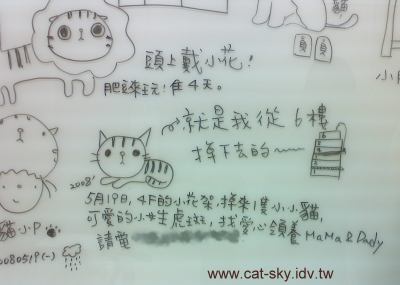 貓,
頭上戴小花!
肥來玩! 隹 4天。
就是我從 6樓
掉下去的~
2008'
5月19日, 4F的小花架,掉來1隻小小貓,
可愛的小女生虎斑, 找愛心領養 MaMa & Dady
請電
貓小P
20080519(一)
www.cat-sky.idv.tw